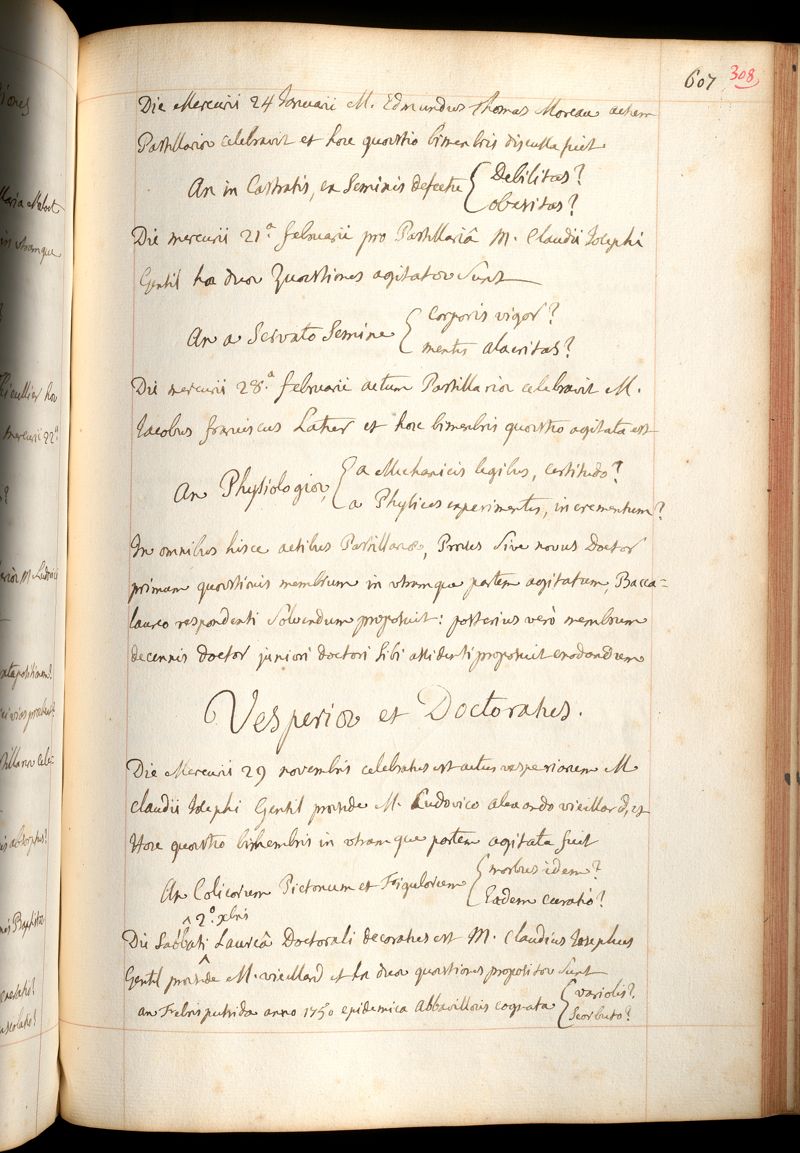 607 308
Die Mercurii 24 Januarii M. Edmundus Thomas Moreau actum
Pastillariæ celebravit et hæc quæstio bimembris discussa fuit
An in Castratis, ex Seminis defectu { Debilitas?
obesitas?
Die mercurii 21.a februarii pro Pastillariâ M. Claudii Josephi
Gentil hæ duæ Quæstiones agitatæ Sunt
An a Servato Semine { Corporis vigor?
mentis alacritas?
Die mercurii 28.a februarii actum Pastillariæ celebravit M.
Jacobus franciscus Lather et hæc bimembris quæstio agitata est
An Physiologiæ, { a Mechanicis legibus, certitudo?
a Physices experimentis, incrementum?
In omnibus hisce actibus Pastillariæ, Præses Sive novus Doctor
primum quæstionis membrum in utramque partem agitatum, Bacca=
laureo respondenti Solvendum proposuit: posterius verò membrum
decennis doctor juniori doctori Sibi assidenti proposuit enodandum
Vesperiæ et Doctoratus.
Die Mercurii 29 novembris celebratus est actus vesperiarum M
Claudii Josephi Gentil præside M. Ludovico alexandro vieillard, et
Hæc quæstio bimembris in utramque partem agitata fuit
An Colicorum Pictonum et Figulorum { morbus idem?
Eadem curatio?
^ 2.o xbris
Die Sabbati Laureâ Doctorali decoratus est M. Claudius Josephus
Gentil præside M. vieillard et hæ duæ quæstiones propositæ Sunt
an Febris putrida anno 1750 epidemica Abbavillæis cognata { variolis?
Scorbuto?